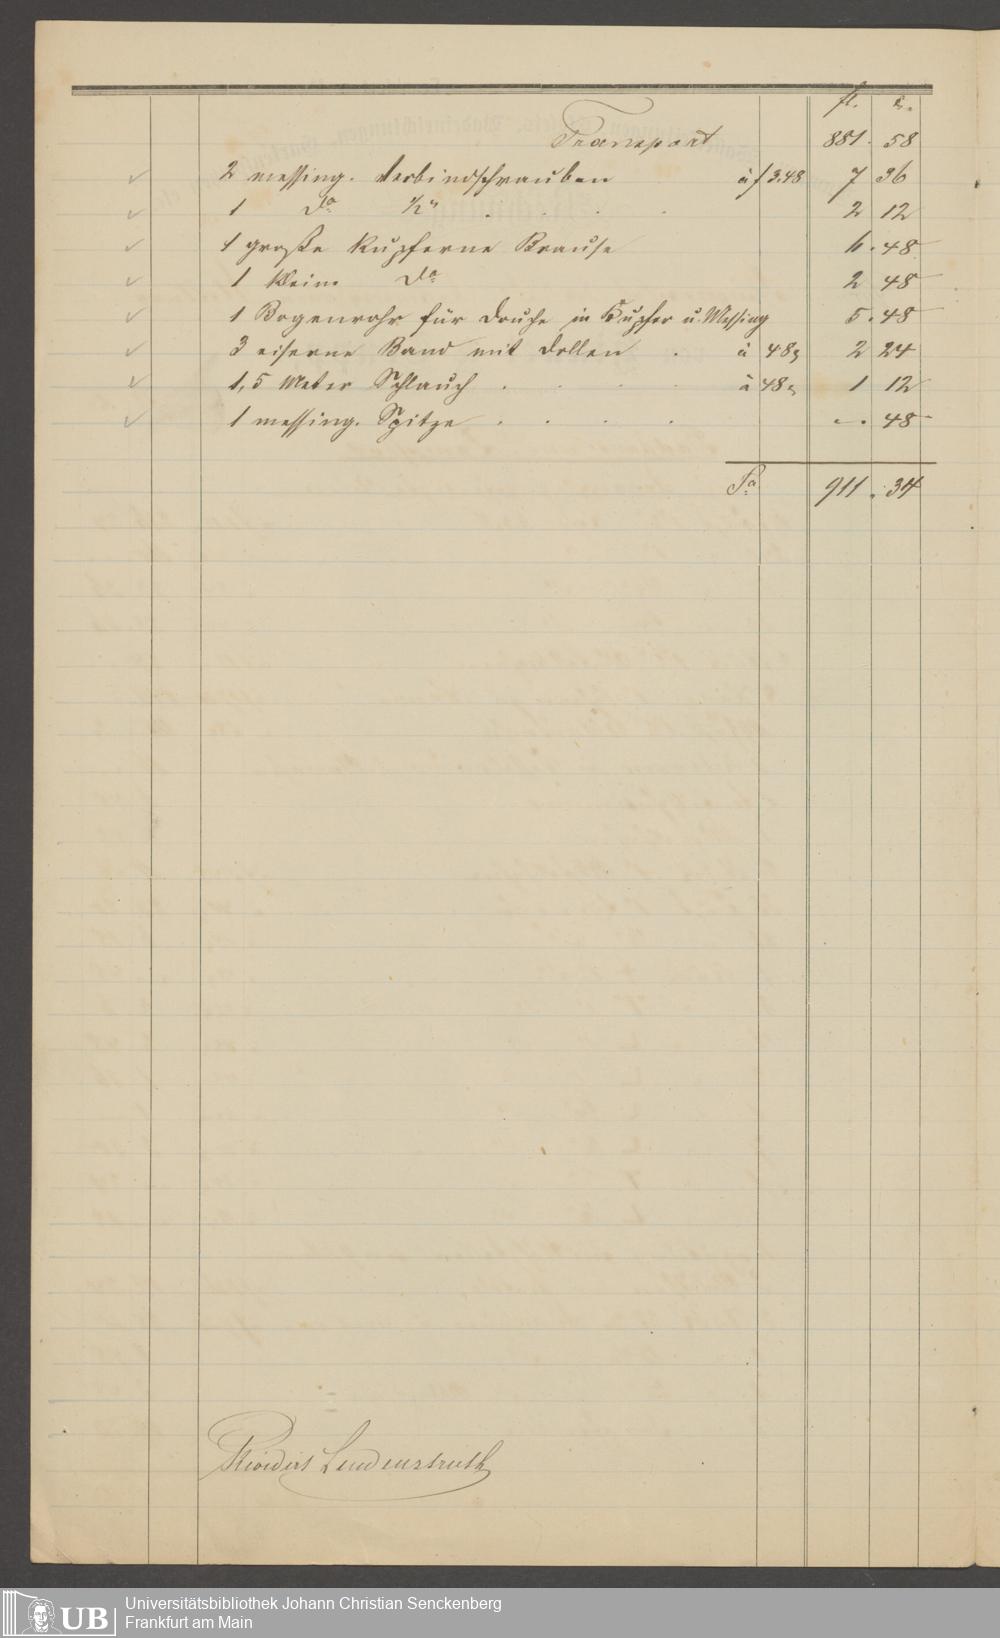 fl. x.
Transport 881. 58
2 messing. Verbindschrauben à f 3.48 7 36
1 do 1/2" . . . . 2 12
1 große kupferne Brause 6. 48
1 kleine do 2 48
1 Bogenrohr für Douche in Kupfer u. Messing 5. 48
3 eiserne Band mit Dollen . à 48x 2 24
1,5 Meter Schlauch . . . . à 48x 1 12
1 messing. Spitze . . . . –. 48
Sa 911. 34
Lendenstruth
UB
Universitätsbibliothek Johann Christian Senckenberg
Frankfurt am Main